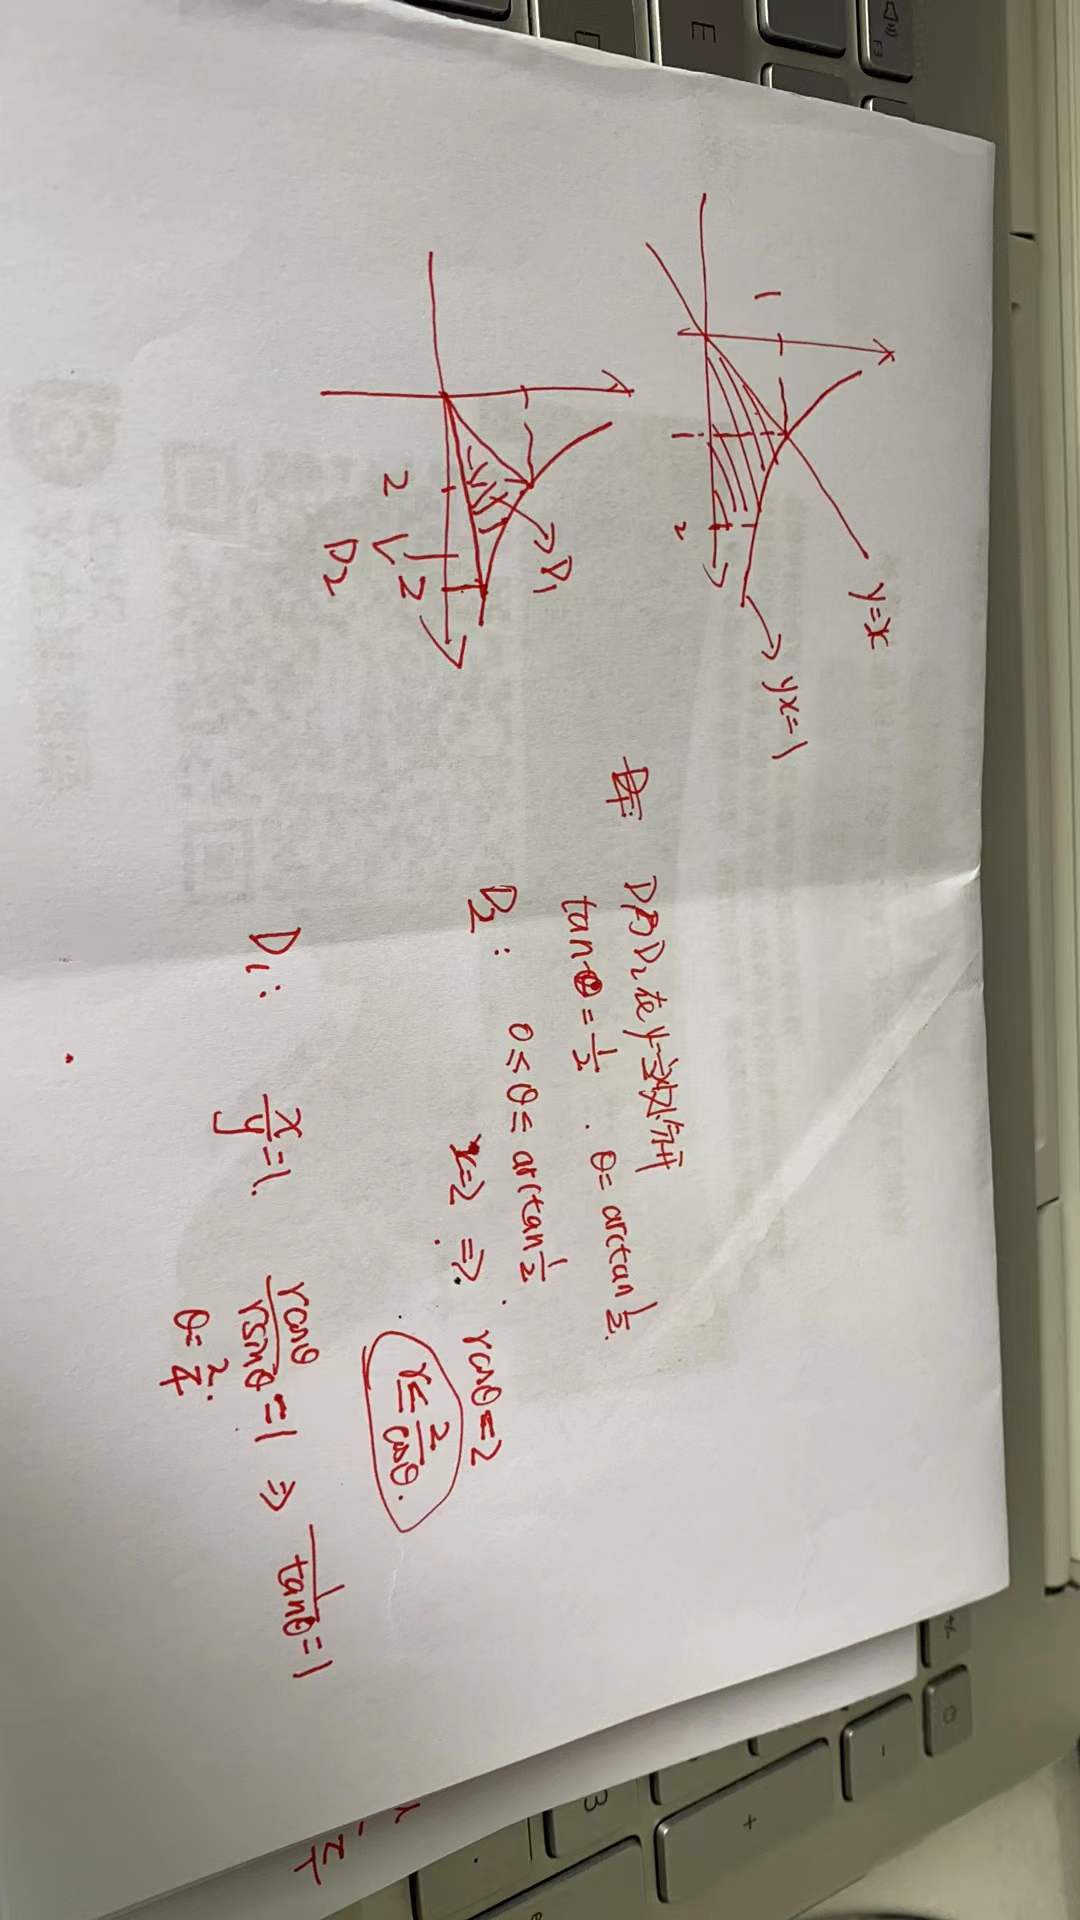 y=x
1
yx=1
1
2
D1
2
2
D2
D1与D2在y=½x处分开
tanθ=1/2 . θ=arctan 1/2.
D2: 0≤θ≤arctan 1/2
x=2 ⇒ rcosθ=2
r≤2/cosθ.
D1: x/y=1. rcosθ/rsinθ=1 ⇒ 1/tanθ=1
E
3
+
-